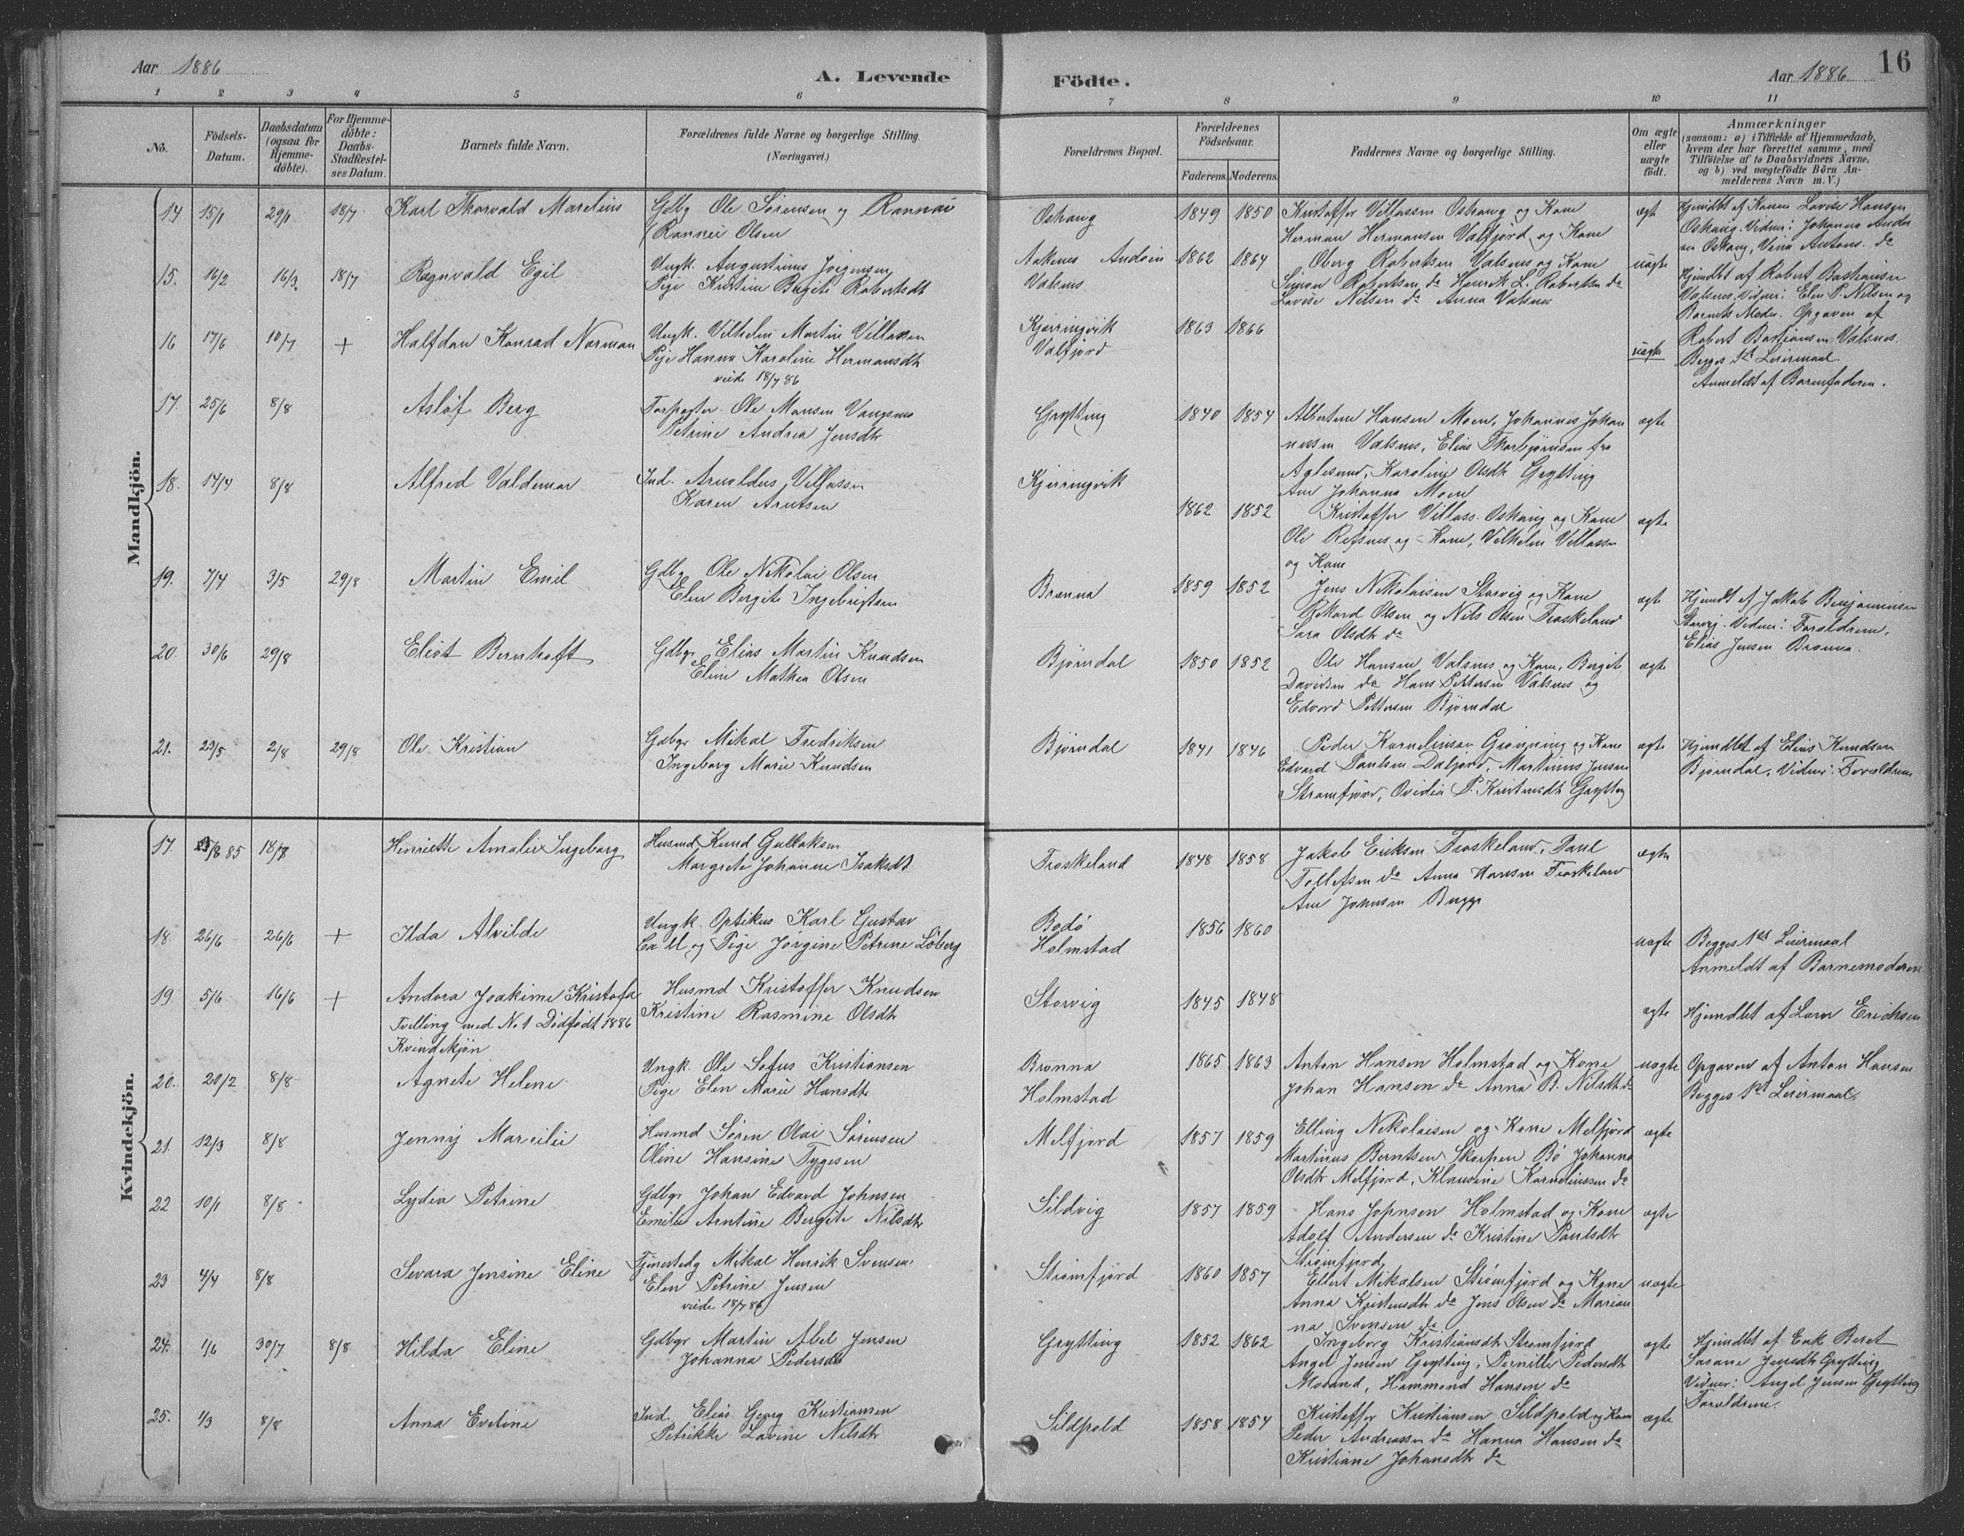 Aar 1886
A. Levende
Födte.
Aar 1886
16
1 2 3 4 5 6 7 8 9 10 11
No.
Födsels-Datum.
Daabsdatum (ogsaa for Hjemmedöbte).
For Hjemmedöbte: Daabs-Stadfæstelses Datum.
Barnets fulde Navn.
Forældrenes fulde Navne og borgerlige Stilling.
(Næringsvei.)
Forældrenes Bopæl.
Forældrenes Födselsaar.
Faderens. Moderens.
Faddernes Navne og borgerlige Stilling.
Om ægte eller uægte födt.
Anmærkninger
(saasom: a) i Tilfælde af Hjemmedaab,
hvem der har forrettet samme, med
Tilföielse af to Daabsvidners Navne,
og b) ved uægtefödte Börn An-
melderens Navn m. V.)
Mandkjön.
14 15/1 29/1 18/7 Karl Thorvald Marelius
Gdbg Ole Sørensen og Rannæi
(Rannei Olsen
Oshaug 1849 1850
Kristoffer Villassen Oshaug og Kone
Herman Hermansen Valfjord og Kone
ægt
Hjemdøbt af Konen Lovise Hansen
Oshaug. Vidner: Johanna Ander
sen Oshaug, Vina Antons. do
15. 16/2 16/3 18/7 Ragnvald Egil
Ungk. Augustinus Jørgensen
Pige Kristine Bergite Robertsdt
Aaknes Andøen
Valsnes
1862 1864
Oberg Robertsen Valsnes og Kone
Simon Robertsen do Henrik L. Robertsen do
Lovise Nilsen do Anna Valsnes
uægte
Hjemdbt af Robert Bastiansen
Valsnes. Vidner: Elen P. Nilsen og
Barnets Moder. Opgaven af
Robert Bastiansen Valsnes.
Begges 1st Leiermaal.
16 17/6 10/7 + Halfdan Konrad Norman
Ungk. Vilhelm Martin Villassen
Pige Hanna Karoline Hermansdt
viede 18/7 86
Kjørringvik
Valfjord
1863 1866
uægte
Anmeldt af Barnefaderen.
17. 25/6 8/8 Asløf Berg
Forpagter Ole Monsen Vangsnes
Petrine Andrea Jensdt
Grytting 1840 1854
Albertine Hansen Moen, Johannes Johan
nessen Valsnes, Elias Thorbjørnsen fra
Aglesund, Karoline Olsdt Grytting
Ane Johanna Moen
ægte
18. 14/4 8/8 Alfred Valdemar
Ind. Arnoldus Villassen
Karen Arntsen
Kjørringvik
1862 1852
Kristoffer Villass. Oshaug og Kone
Ole Refsnes og Kone, Vilhelm Villassen
og Kone
ægte
19. 7/4 3/5 29/8 Martin Emil
Gdbg Ole Nikolai Olsen
Elen Bergite Ingebrigtsen
Brønna 1859 1852
Jens Nikolaisen Storvig og Kone
Rikard Olsen og Nils Olsen Froskeland
Sara Olsdt do
ægte
Hjemdt af Jakob Benjaminsen
Storvig. Vidner: Forældrene.
Elias Jensen Brønna.
20. 30/6 29/8 Eliot Bernhoft
Gdbgr Elias Martin Knudsen
Eline Mathea Olsen
Bjørndal 1850 1852
Ole Hansen Valsnes og Kone, Bergit
Davidsen do Hans Pettersen Valsnes og
Edvard Pettersen Bjørndal
ægte
21. 23/5 2/8 29/8 Ole Kristian
Gdbgr Mikal Fredriksen
Ingeborg Marie Knudsen
Bjørndal 1841 1846
Peder Korneliussen Grønning og Kone
Edvard Paulsen Daljord, Martinus Jensen
Strømfjord, Ovedia P. Kristensdt Grytting
ægte
Hjemdbt af Elias Knudsen
Bjørndal, Vidner: Forældrene
Kvindekjön.
17. 8 85 18/7 Henriette Amalie Ingeborg
Husmd Knud Gullaksen
Margrete Johanne Isaksdt
Froskeland 1848 1858
Jakob Eriksen Froskeland, Paul
Tollefsen do Anna Hansen Froskeland
Ane Johnsen Bugge
ægte
18. 26/6 26/6 + Ilda Alvilde
Ungk. Optikus Karl Gustav
og Pige Jørgine Petrine Løberg
Bodø
Holmstad
1856 1860
uægte
Begges 1ste Leiermaal
Anmeldt af Barnemoderen
19 5/6 16/6 + Andora Joakime Kristofa
Tvilling med No 1 Dødfødt 1886
Kvindekjøn
Husmd Kristoffer Knudsen
Kristine Rasmine Olsdt
Storvig 1845 1848
ægte
Hjemdbt af Lorn Erichsen
20. 20/2 8/8 Agnete Helene
Ungk. Ole Sofus Kristiansen
Pige Elen Marie Hansdt
Brønna
Holmstad
1865 1863
Anton Hansen Holmstad og Kone
Johan Hansen do Anna B. Nilsdt do
uægte
Opgaven af Anton Hansen
Begges 1st Leiermaal.
21. 12/3 8/8 Jenny Marcilie
Husmd Søren Olai Sørensen
Oline Hansine Tygesen
Melfjord 1857 1859
Elling Nikolaisen og Kone Melfjord
Martinus Berntsen Skorpen Bø Johanna
Olsdt Melfjord, Klaudine Korneliussen do
ægte
22 10/1 8/8 Lydia Petrine
Gdbgr Johan Edvard Johnsen
Emilie Arntine Bergite Nilsdt
Sildvig 1857 1859
Hans Johnsen Holmstad og Kone
Adolf Andersen do Kristine Paulsdt
Strømfjord,
ægte
23 4/4 8/8 Sevara Jensine Eline
Tjenestedg Mikal Henrik Svensen
Elen Petrine Jensen
viede 18/7 86
Strømfjord 1860 1857
Ellert Mikalsen Strømfjord og Kone
Anna Kristensdt do Jens Olsen do Marian
na Svensen do
uægte
24. 1/6 30/7 8/8 Hilda Eline
Gdbgr Martin Abel Jensen
Johanna Pedersdt
Grytting 1852 1862
Ingeborg Kristiansdt Strømfjord
Angel Jensen Grytting, Pernille Pedersdt
Moland, Hammond Hansen do
ægte
Hjemdbt af Enk Beret
Susane Jensdt Grytting
Vidner: Angel Jensen Grytting
Forældrene
25. 1/3 8/8 Anna Eveline
Ind. Elias Georg Kristiansen
Petrikke Lovine Nilsdt
Sildpold 1858 1854
Kristoffer Kristiansen Sildpold og Kone
Peder Andreassen do Hanna Hansen do
Kristiane Johansdt do
ægte